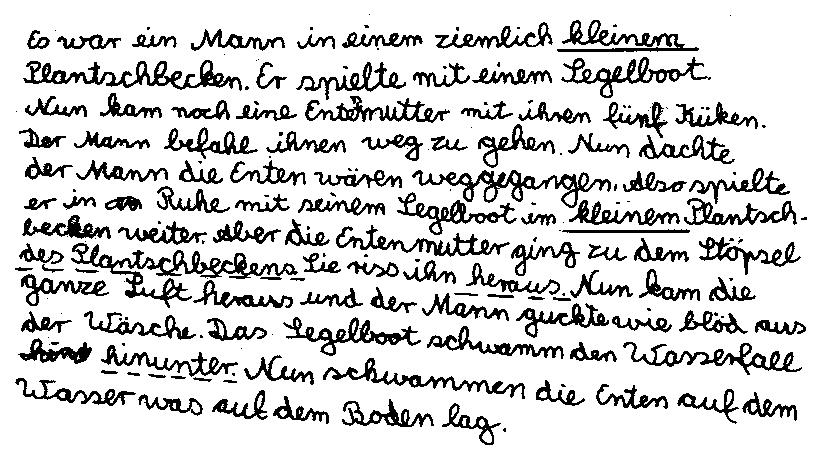 Es war ein Mann in einem ziemlich kleinem
Plantschbecken. Er spielte mit einem Segelboot.
Nun kam noch eine Entenmutter mit ihren fünf Küken.
Der Mann befahl ihnen weg zu gehen. Nun dachte
der Mann die Enten wären weggegangen. Also spielte
er in Ruhe mit seinem Segelboot im kleinem Plantsch-
becken weiter. Aber die Entenmutter ging zu dem Stöpsel
des Plantschbeckens Sie riss ihn heraus. Nun kam die
ganze Luft heraus und der Mann guckte wie blöd aus
der Wäsche. Das Segelboot schwamm den Wasserfall
hinunter. Nun schwammen die Enten auf dem
Wasser was auf dem Boden lag.